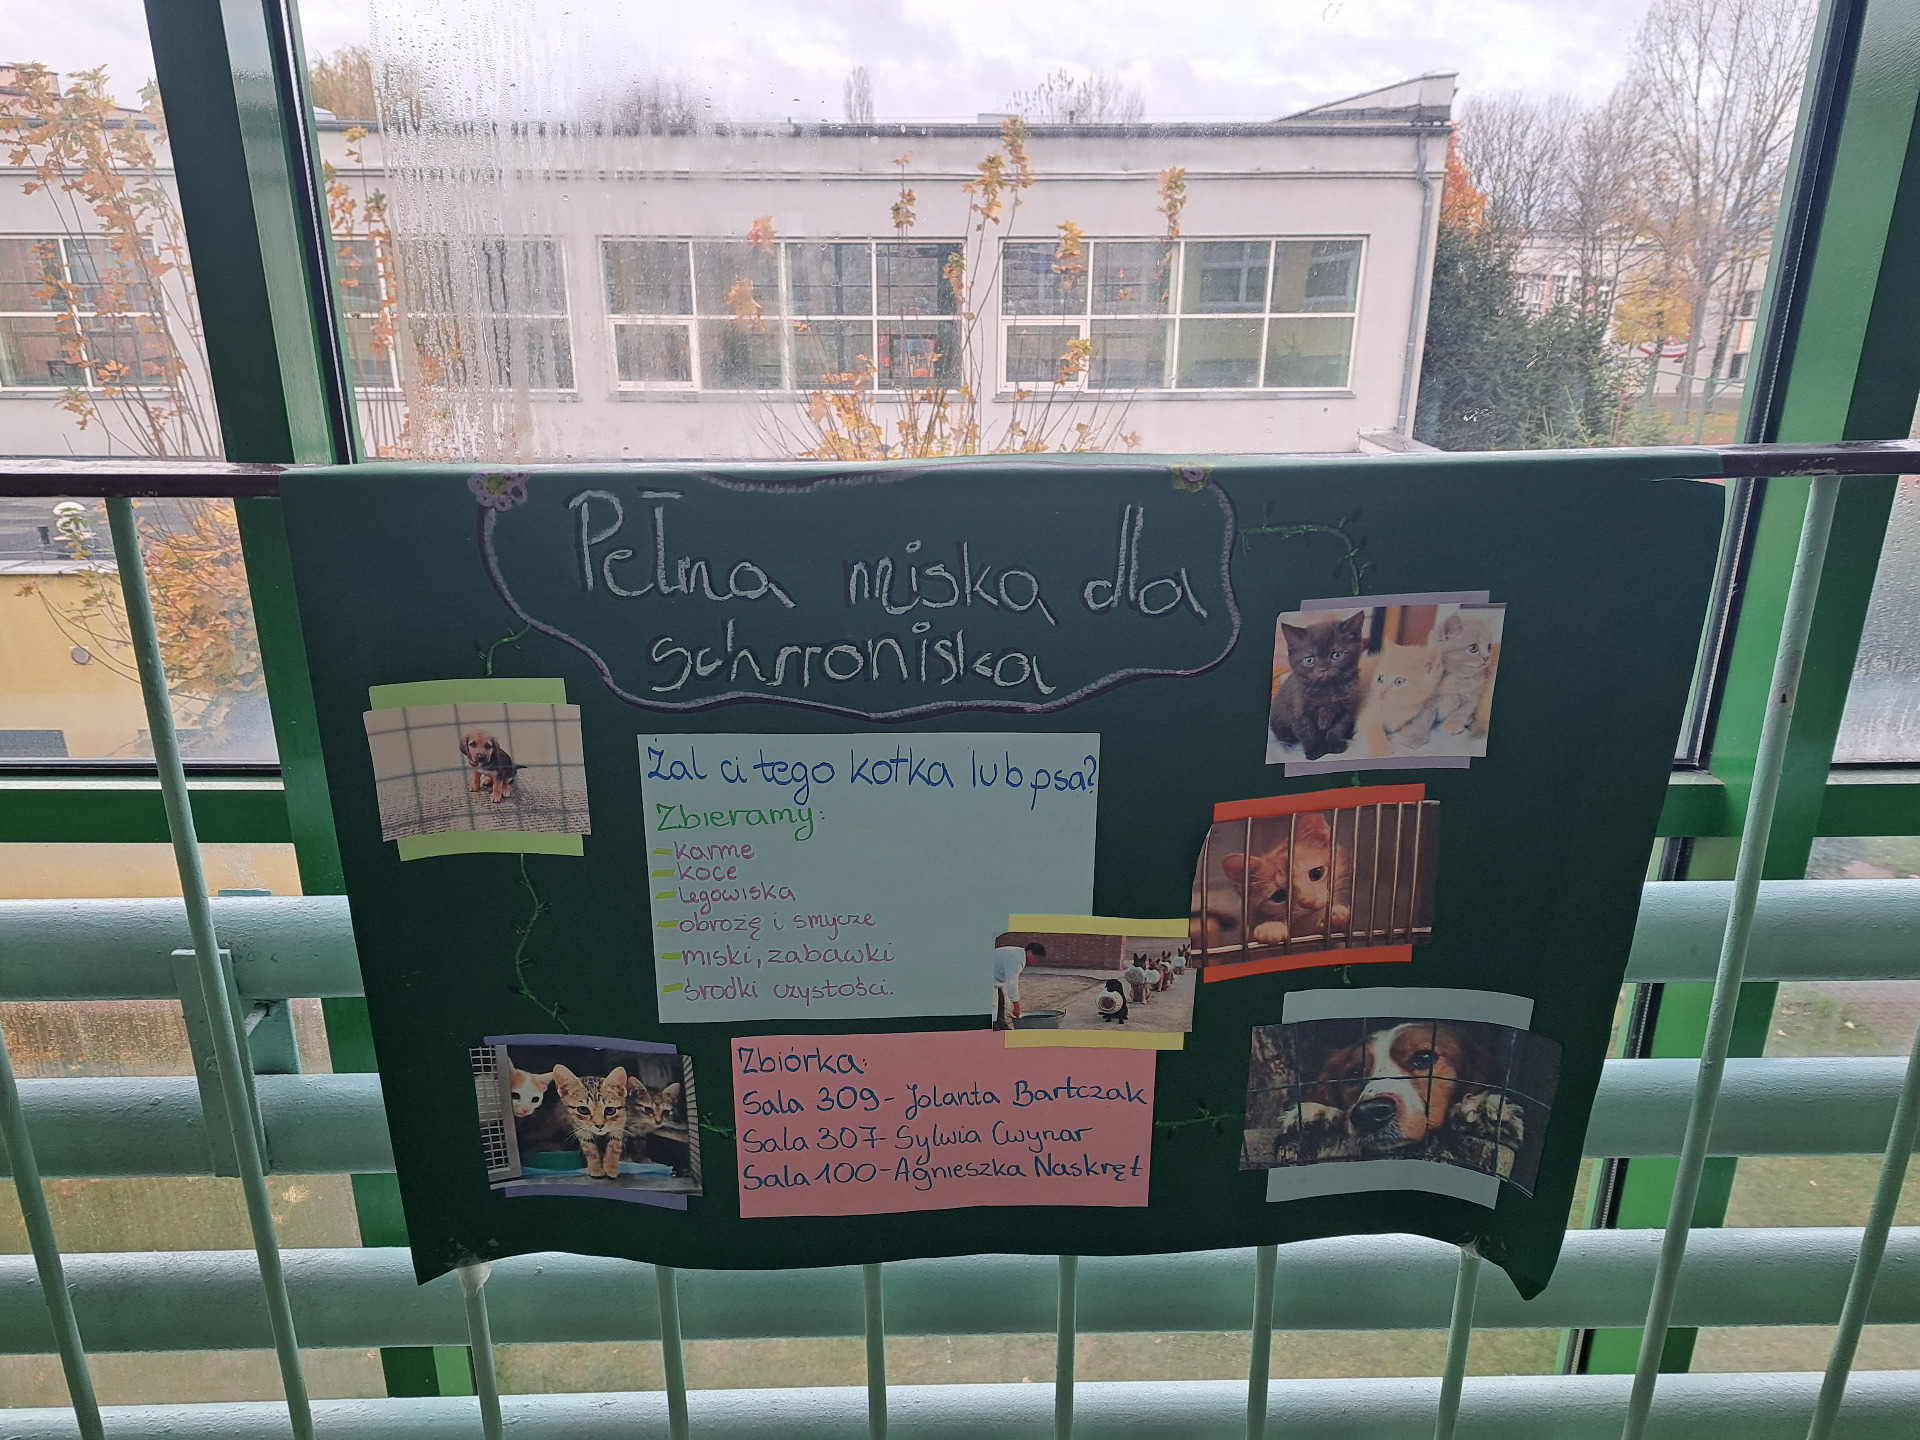 Pełna miska dla
schroniska
Żal ci tego kotka lub psa?
Zbieramy:
- karme
- koce
- legowiska
- obrożę i smycze
- miski, zabawki
- środki czystości.
Zbiórka:
Sala 309- Jolanta Bartczak
Sala 307- Sylwia Cwynar
Sala 100-Agnieszka Naskręt